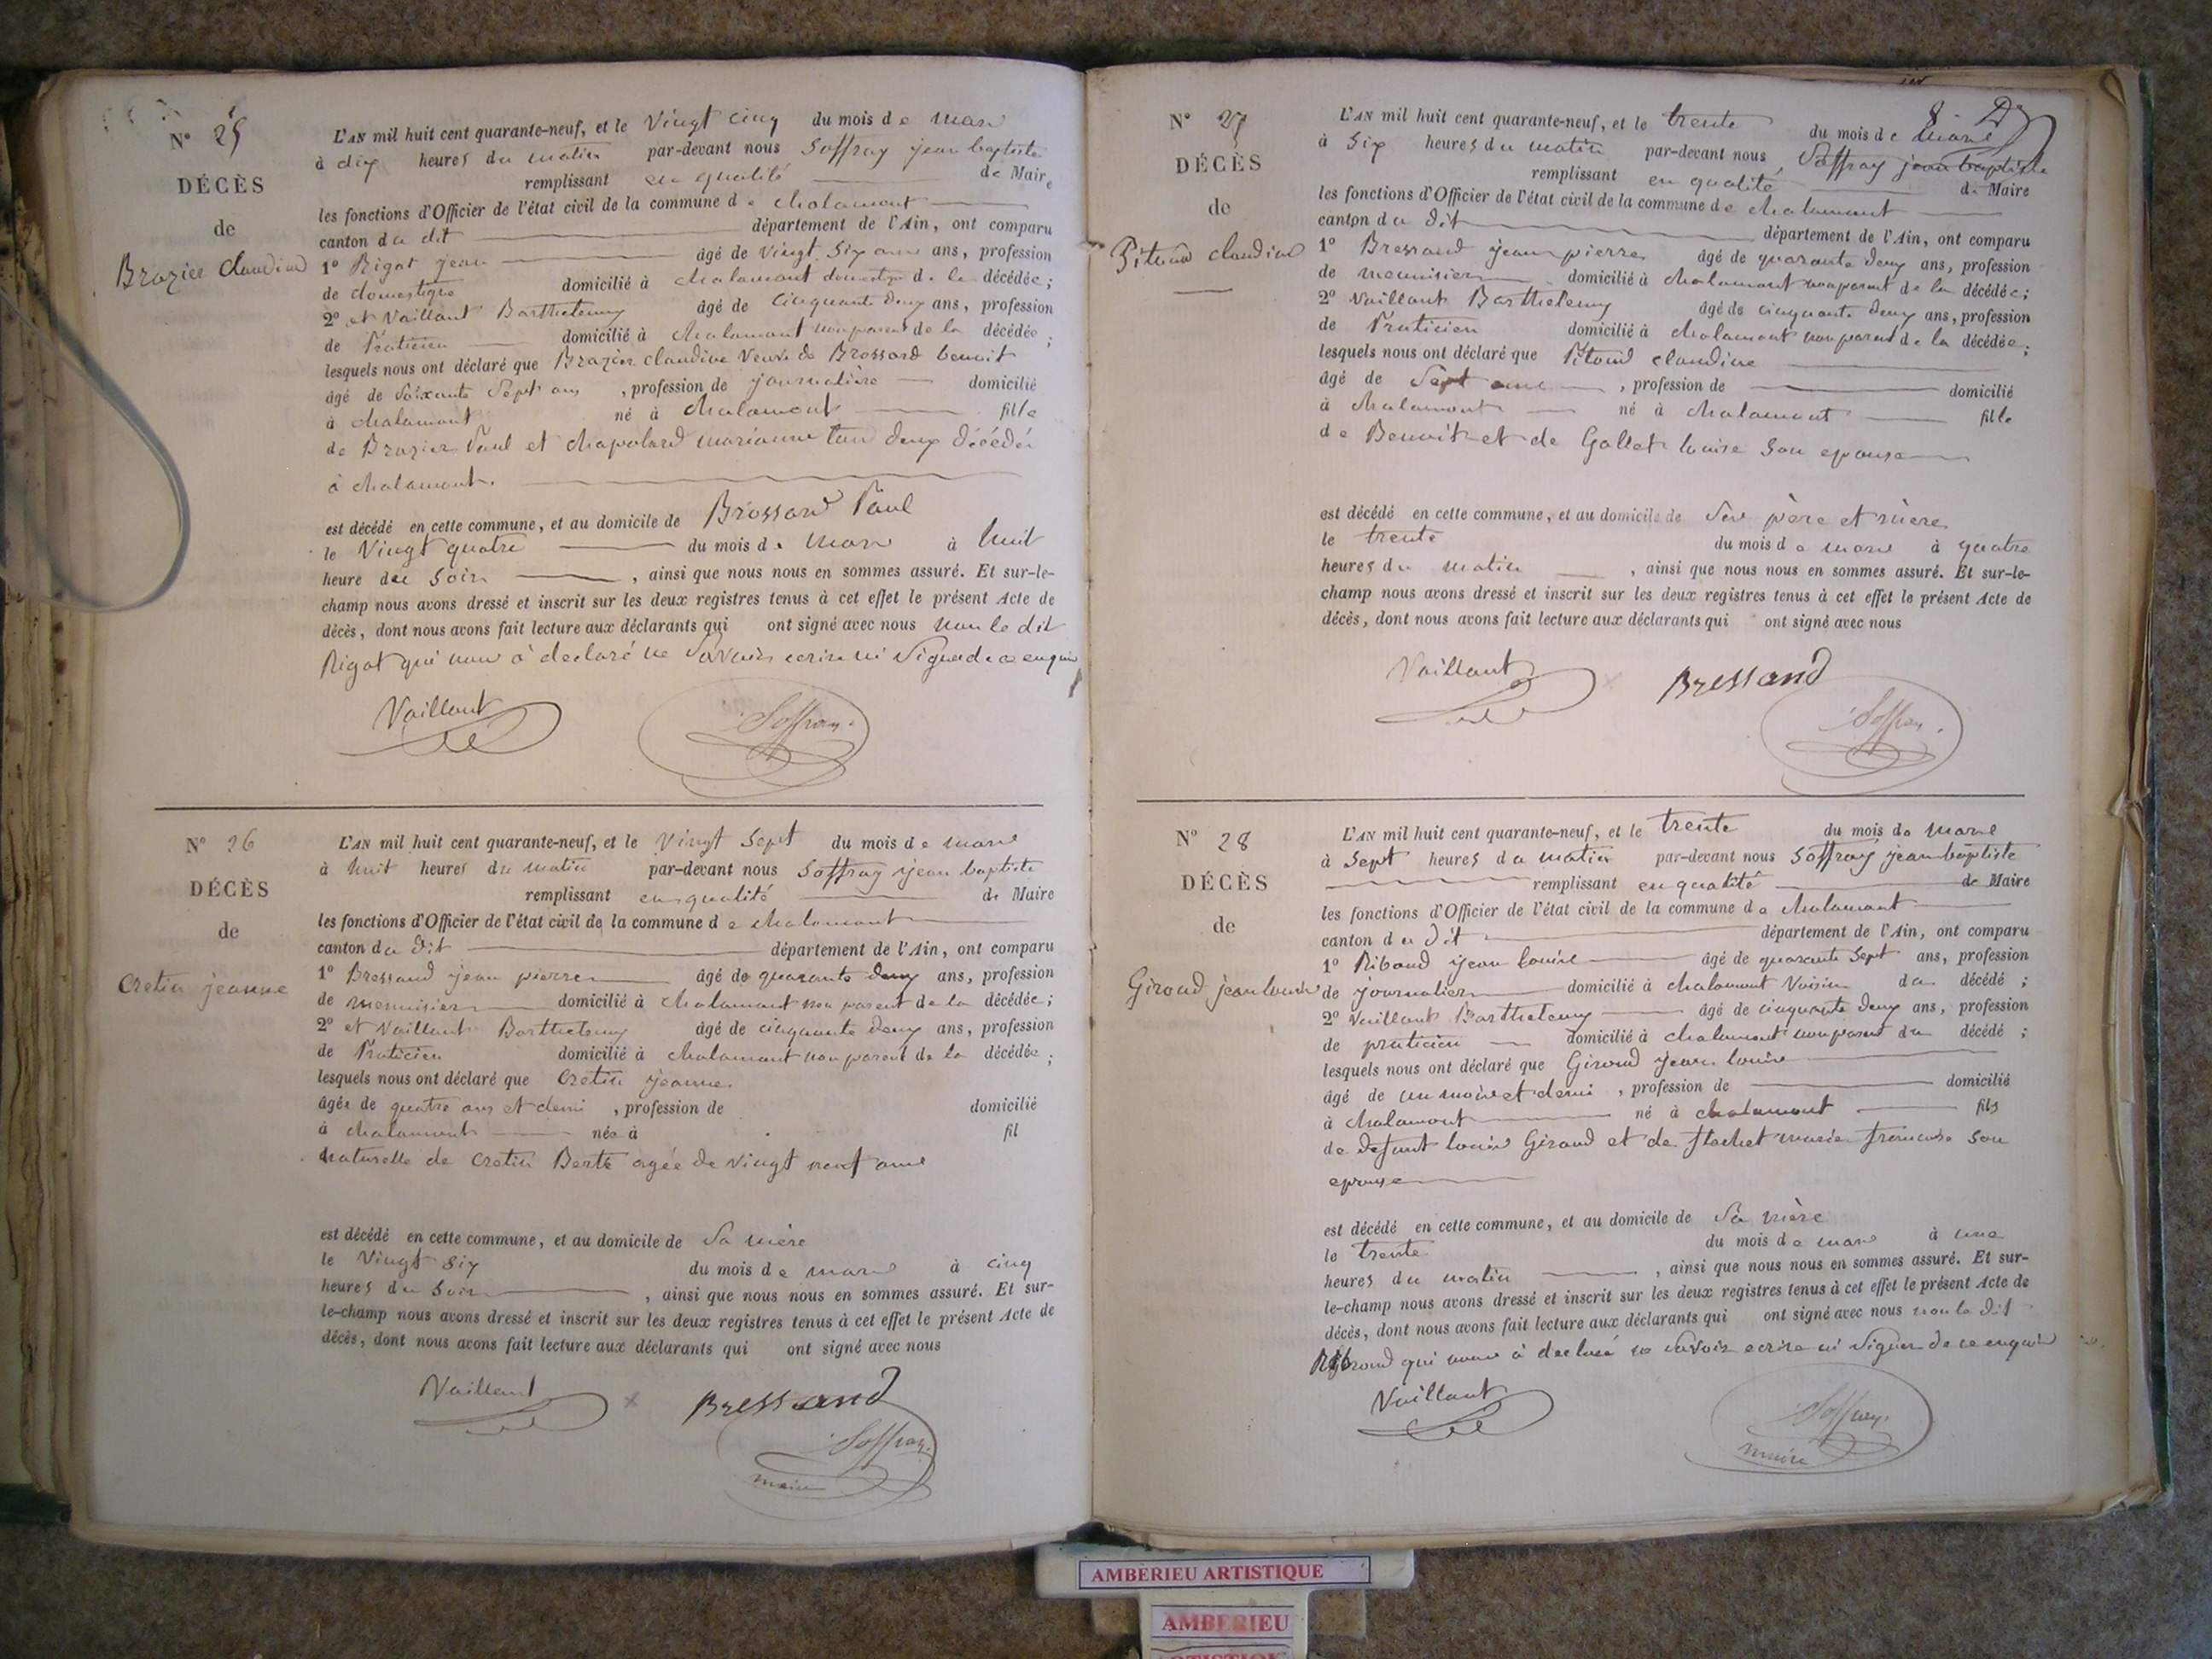 N° 25
DÉCÈS
de
Brazier Claudine
L'AN mil huit cent quarante-neuf, et le Vingt cinq du mois de mars
à dix heures du matin par-devant nous Soffray jean baptiste
remplissant en qualité de Maire
les fonctions d'Officier de l'état civil de la commune de chalamont
canton du dit département de l'Ain, ont comparu
1° Rigat jean âgé de Vingt Six ans ans, profession
de domestique domicilié à chalamont de la décédée ;
2° et Vaillant Barthelemy âgé de Cinquante deux ans, profession
de Praticien domicilié à chalamont non parent de la décédée ;
lesquels nous ont déclaré que Brazier claudine Veuve de Brossard benoit
âgé de Soixante Sept ans , profession de journalière domicilié
à chalamont né à chalamont fille
de Brazier Paul et chapolard marianne tous deux décédés
à chalamont.
est décédé en cette commune, et au domicile de Brossard Paul
le Vingt quatre du mois de mars à huit
heure du Soir , ainsi que nous nous en sommes assuré. Et sur-le-
champ nous avons dressé et inscrit sur les deux registres tenus à cet effet le présent Acte de
décès, dont nous avons fait lecture aux déclarants qui ont signé avec nous non le dit
Rigat qui nous à declaré ne Savoir ecrire ni Signer de ce enquis
Vaillant Soffray
N° 26
DÉCÈS
de
Cretin jeanne
L'AN mil huit cent quarante-neuf, et le Vingt Sept du mois de mars
à huit heures du matin par-devant nous Soffray jean baptiste
remplissant en qualité de Maire
les fonctions d'Officier de l'état civil de la commune de chalamont
canton du dit département de l'Ain, ont comparu
1° Bressand jean pierre âgé de quarante deux ans, profession
de menuisier domicilié à chalamont non parent de la décédée ;
2° et Vaillant Barthelemy âgé de cinquante deux ans, profession
de Praticien domicilié à chalamont non parent de la décédée ;
lesquels nous ont déclaré que Cretin jeanne
âgée de quatre ans et demi , profession de domicilié
à chalamont née à fil
naturelle de Cretin Berte agée de Vingt neuf ans
est décédé en cette commune, et au domicile de Sa mère
le Vingt Six du mois de mars à cinq
heures du Soir , ainsi que nous nous en sommes assuré. Et sur-
le-champ nous avons dressé et inscrit sur les deux registres tenus à cet effet le présent Acte de
décès, dont nous avons fait lecture aux déclarants qui ont signé avec nous
Vaillant Bressand
Soffray
maire
8
N° 27
DÉCÈS
de
Pitoud claudine
L'AN mil huit cent quarante-neuf, et le trente du mois de mars
à Six heures du matin par-devant nous Soffray jean baptiste
remplissant en qualité de Maire
les fonctions d'Officier de l'état civil de la commune de chalamont
canton du dit département de l'Ain, ont comparu
1° Bressand jean pierre âgé de quarante deux ans, profession
de menuisier domicilié à chalamont non parent de la décédée ;
2° Vaillant Barthelemy âgé de cinquante deux ans, profession
de Praticien domicilié à chalamont non parent de la décédée ;
lesquels nous ont déclaré que Pitoud claudine
âgé de Sept ans , profession de domicilié
à chalamont né à chalamont fille
de Benoit et de Gallet louise Son epouse
est décédé en cette commune, et au domicile de Ses père et mère
le trente du mois de mars à quatre
heures du matin , ainsi que nous nous en sommes assuré. Et sur-le-
champ nous avons dressé et inscrit sur les deux registres tenus à cet effet le présent Acte de
décès, dont nous avons fait lecture aux déclarants qui ont signé avec nous
Vaillant Bressand
Soffray
N° 28
DÉCÈS
de
Giroud jean louis
L'AN mil huit cent quarante-neuf, et le trente du mois de mars
à Sept heures du matin par-devant nous Soffray jean baptiste
remplissant en qualité de Maire
les fonctions d'Officier de l'état civil de la commune de chalamont
canton du dit département de l'Ain, ont comparu
1° Riboud jean louis âgé de quarante Sept ans, profession
de journalier domicilié à chalamont Voisin du décédé ;
2° Vaillant Barthelemy âgé de cinquante deux ans, profession
de praticien domicilié à chalamont non parent du décédé ;
lesquels nous ont déclaré que Giroud jean louis
âgé de un mois et demi , profession de domicilié
à chalamont né à chalamont fils
de defunt louis Giroud et de flachet marie francoise Son
epouse
est décédé en cette commune, et au domicile de Sa mère
le trente du mois de mars à une
heures du matin , ainsi que nous nous en sommes assuré. Et sur-
le-champ nous avons dressé et inscrit sur les deux registres tenus à cet effet le présent Acte de
décès, dont nous avons fait lecture aux déclarants qui ont signé avec nous non le dit
Riboud qui nous à declaré ne Savoir ecrire ni Signer de ce enquis
Vaillant Soffray
maire
AMBERIEU ARTISTIQUE
AMBERIEU
ARTISTIQUE